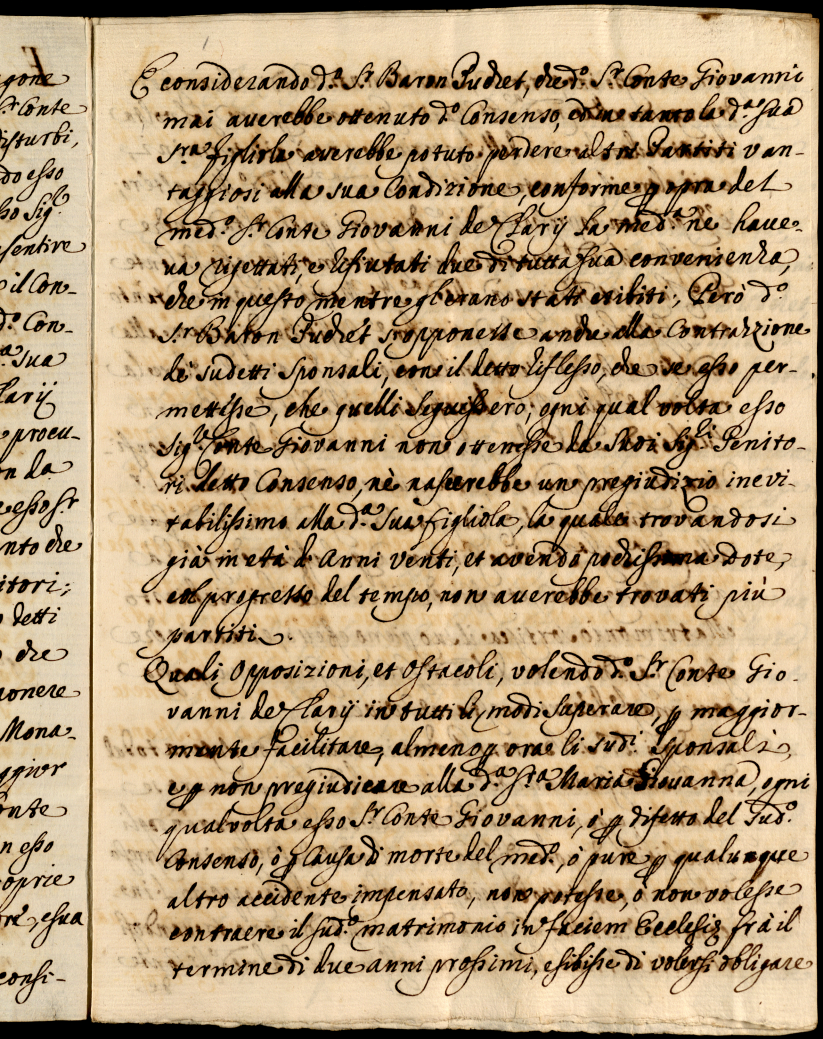 gone
Sr. Conte
disturbi,
do esso
so Sigr.
sentire
il Con-
d.º Con-
a sua
larij
procu-
on da
e esso Sr
nto che
itori;
detti
che
ponere
Mona-
ggior
onte
n esso
oprie
re, e sua
consi-
E considerando d.º Sr. Baron Pudret, che d.º Sr. Conte Giovanni
mai averebbe ottenuto d.º Consenso, ed in tanto la d.ª Sua
Sra. figliola averebbe potuto perdere altri Partiti van-
taggiosi alla sua Condizione, conforme p opra del
med.º Sr. Conte Giovanni de Clarij la med.ª ne have-
va rigettati, e rifiutati due di tutta sua convenienza,
che in questo mentre gl'erano stati esibiti, Però d.º
Sr. Baron Pudret s'opponesse anche alla Contrazzione
de sudetti Sponsali, con il detto riflesso, che se esso per-
mettesse, che quelli seguissero; ogni qual volta esso
Sigr. Conte Giovanni non ottenesse da suoi Sigri. Genito-
ri detto Consenso, nè nascerebbe un pregiudizio inevi-
tabilissimo alla d.ª Sua figliola, la quale trovandosi
già in età d'Anni venti, et avendo pochissima Dote,
col progresso del tempo, non averebbe trovati più
partiti.
Quali Opposizioni, et Ostacoli, volendo d.º Sr. Conte Gio-
vanni de Clarij in tutti li modi superare, p maggior-
mente facilitare, almeno p ora li sud.i Sponsali,
e p non pregiudicare alla d.ª S.ra Maria Giovanna, ogni
qualvolta esso Sr. Conte Giovanni, ò p difetto del Sud.º
Consenso, ò p Causa di morte del med.º, ò pure p qualunque
altro accidente impensato, non potesse, ò non volesse
contraere il sud.º matrimonio in faciem Ecclesiæ frà il
termine di due anni prossimi, esibisse di volersi obligare